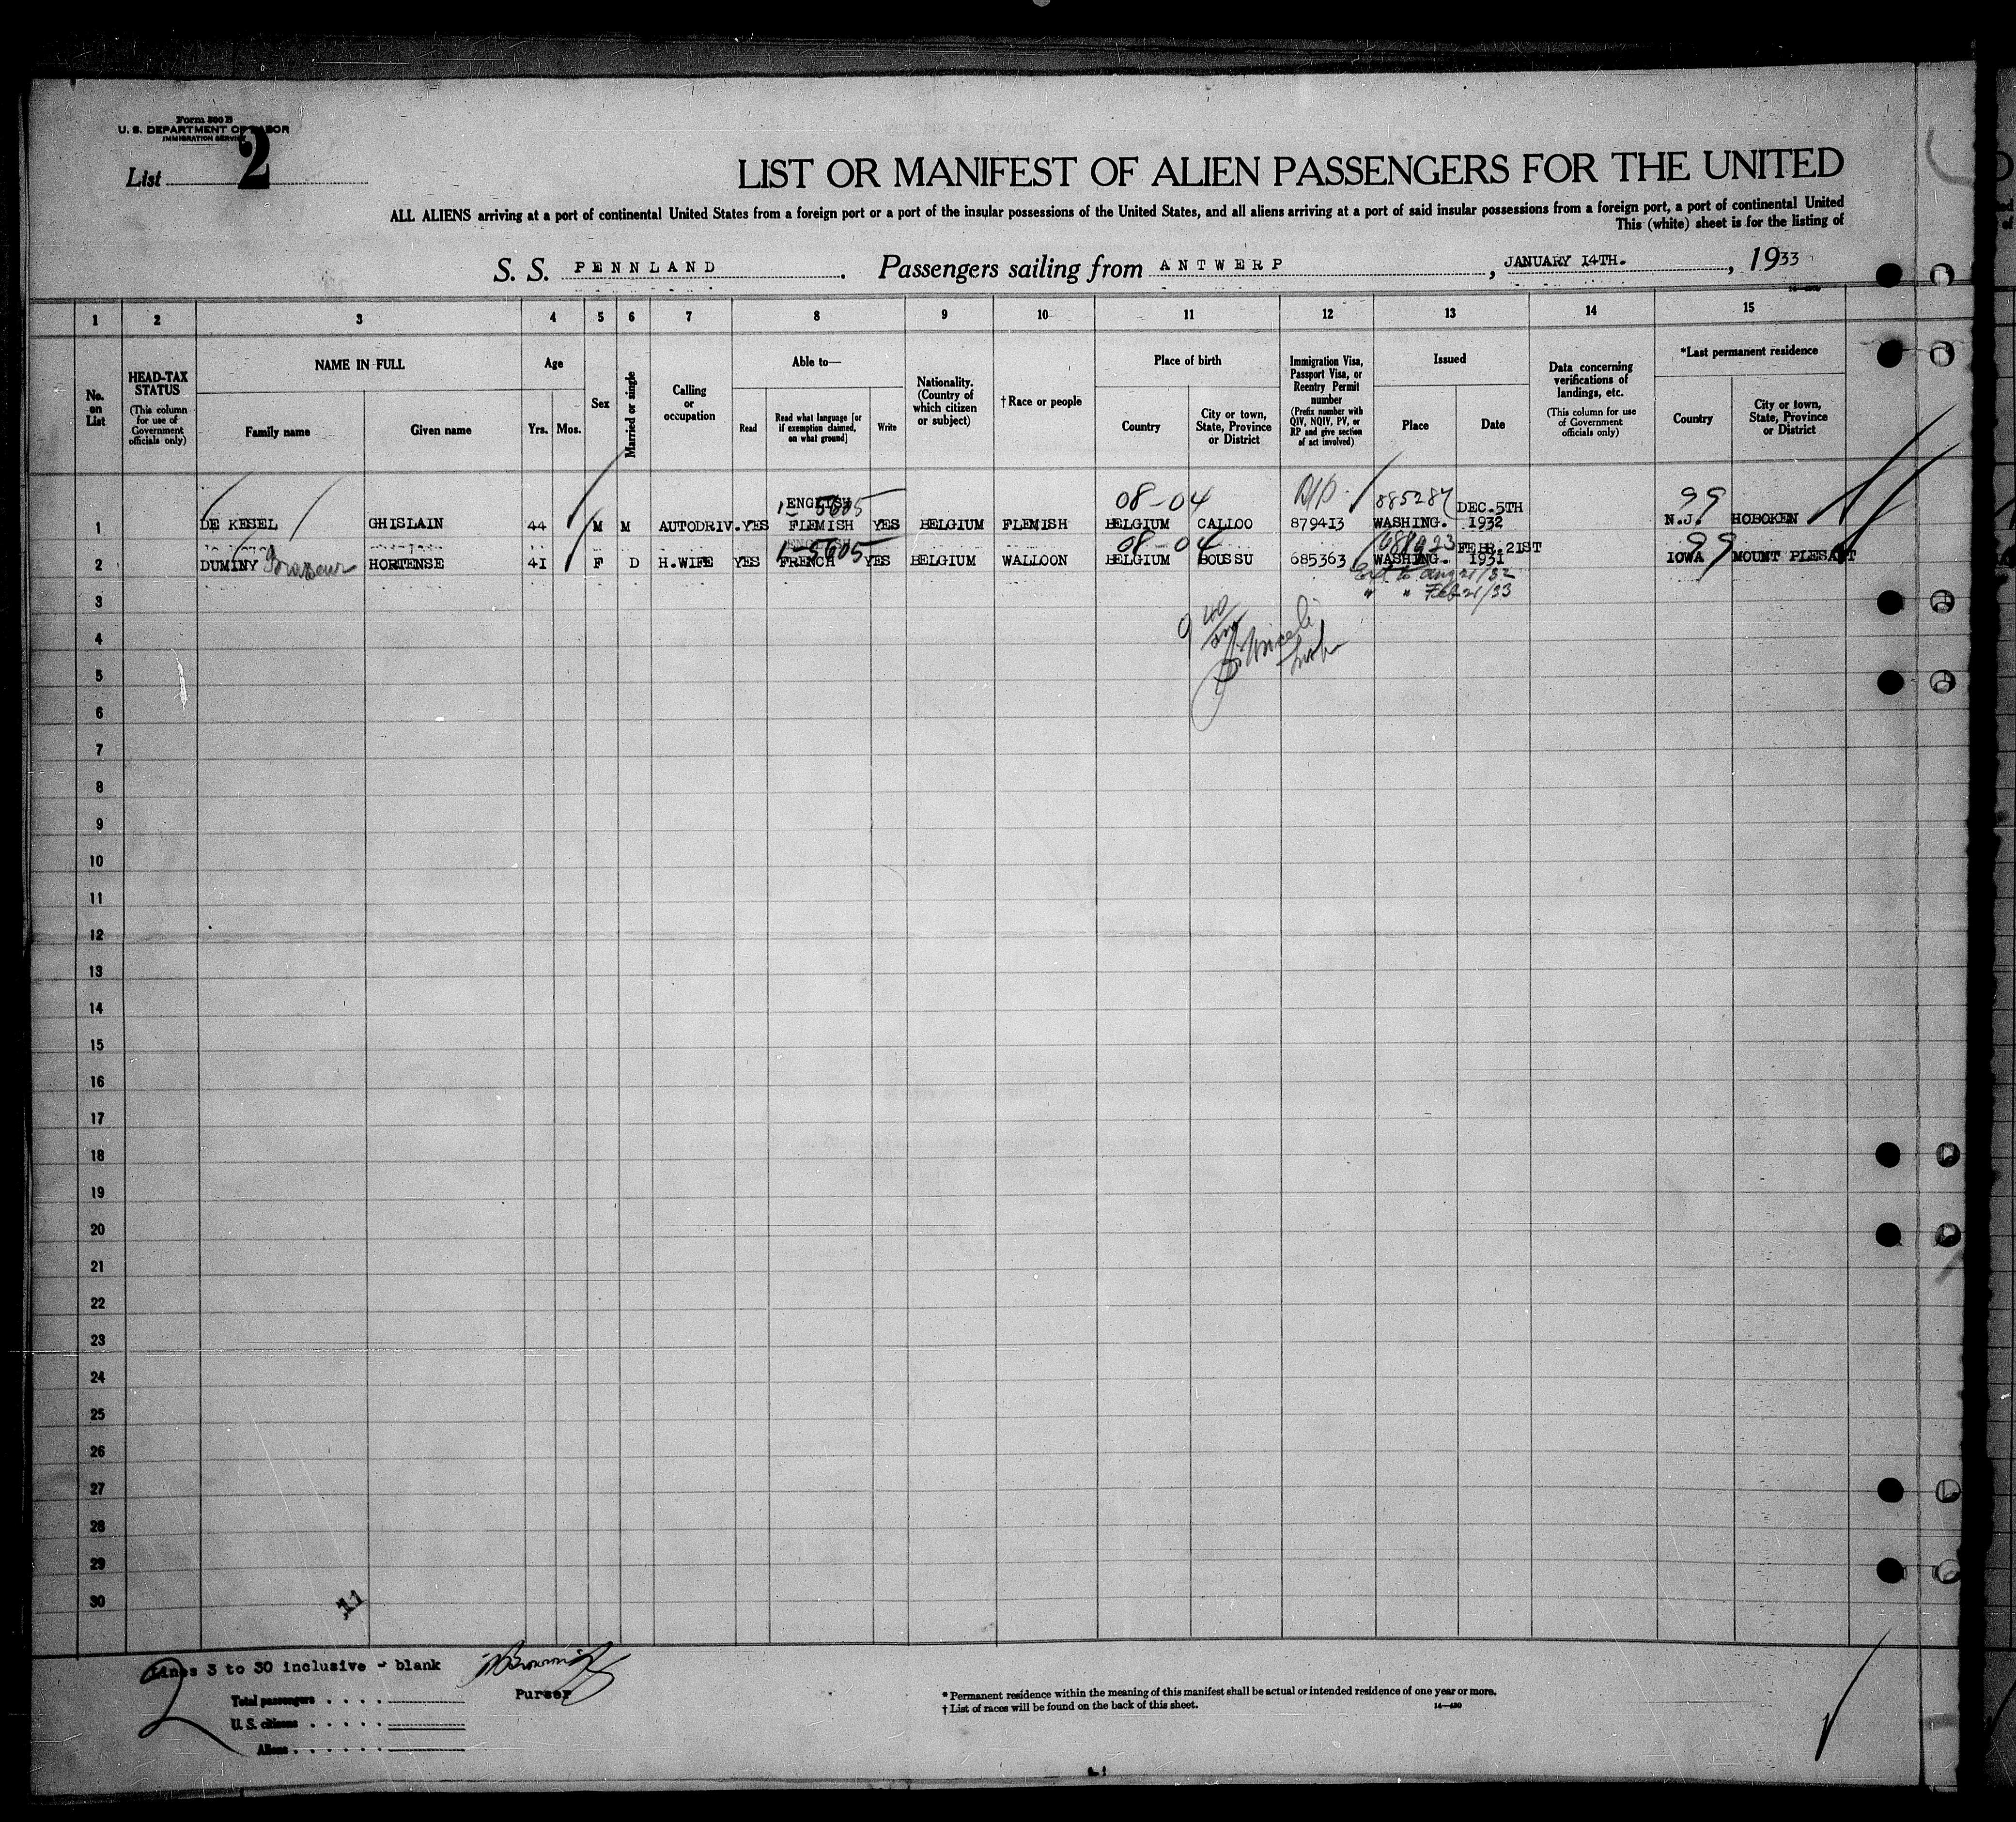 Form 500 B
U. S. DEPARTMENT OF LABOR
IMMIGRATION SERVICE
List 2
LIST OR MANIFEST OF ALIEN PASSENGERS FOR THE UNITED
ALL ALIENS arriving at a port of continental United States from a foreign port or a port of the insular possessions of the United States, and all aliens arriving at a port of said insular possessions from a foreign port, a port of continental United
This (white) sheet is for the listing of
S. S. PENNLAND. Passengers sailing from ANTWERP, JANUARY 14TH., 1933
1 2 3 4 5 6 7 8 9 10 11 12 13 14 15
No. on List
HEAD-TAX STATUS (This column for use of Government officials only)
NAME IN FULL
Family name
Given name
Age
Yrs. Mos.
Sex
Married or single
Calling or occupation
Able to—
Read
Read what language [or if exemption claimed, on what ground]
Write
Nationality. (Country of which citizen or subject)
†Race or people
Place of birth
Country
City or town, State, Province or District
Immigration Visa, Passport Visa, or Reentry Permit number (Prefix number with QIV, NQIV, PV, or RP and give section of act involved)
Issued
Place
Date
Data concerning verifications of landings, etc. (This column for use of Government officials only)
*Last permanent residence
Country
City or town, State, Province or District
ENGLISH 1-5605 08-04 885287 DEC.5TH 99
1 DE KESEL GHISLAIN 44 M M AUTODRIV. YES FLEMISH YES BELGIUM FLEMISH BELGIUM CALLOO 879413 WASHING. 1932 N.J. HOBOKEN
ENGLISH 1-5605 08-04 FEB.21ST 99
2 DUMINY HORTENSE 41 F D H.WIFE YES FRENCH YES BELGIUM WALLOON BELGIUM BOUSSU 685363 WASHING. 1931 IOWA MOUNT PLESANT
Ext to Aug 21/32
" " Feb 21/33
3
4
5
6
7
8
9
10
11
12
13
14
15
16
17
18
19
20
21
22
23
24
25
26
27
28
29
30
11
Lines 3 to 30 inclusive - blank
Purser
2
Total passengers
U. S. citizens
Aliens
* Permanent residence within the meaning of this manifest shall be actual or intended residence of one year or more.
† List of races will be found on the back of this sheet.
14—430